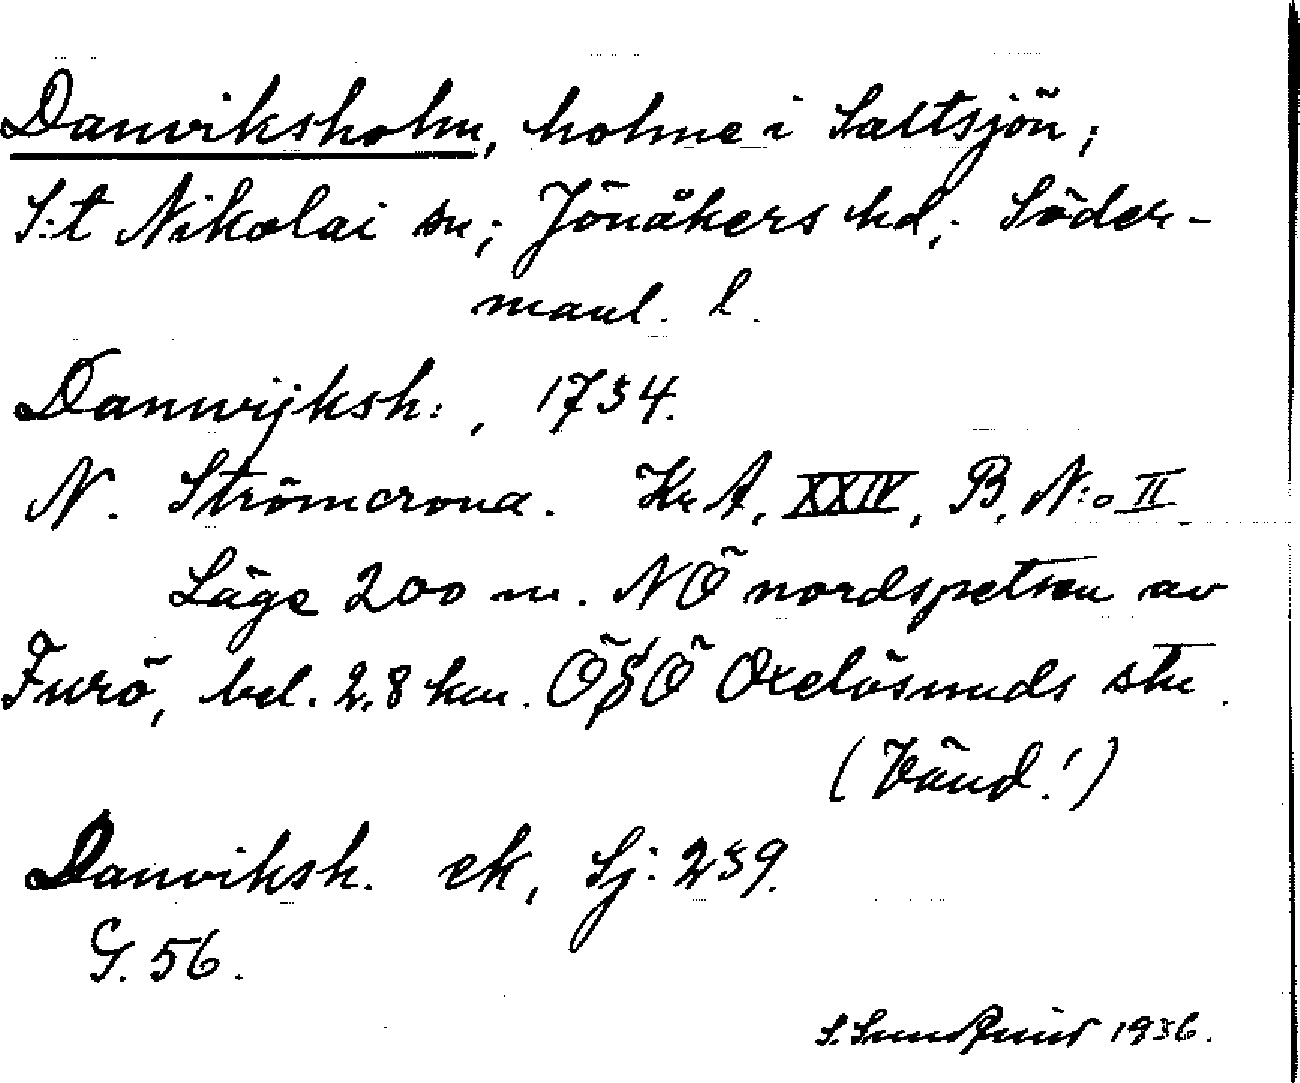 Danviksholm, holme i Saltsjön;
S:t Nikolai sn; Jönåkers hd; Söder-
manl. l.
Danwijksh:, 1734.
N. Strömcrona. Kr A, XXIV, B, N:o II
Läge 200 m. NÖ nordspetsen av
Furö, bel. 2,8 km. Ö§Ö Oxelösunds stn.
(Vänd!)
Danviksh. ek, Sj: 239.
G. 56.
S. Sundquist 1936.